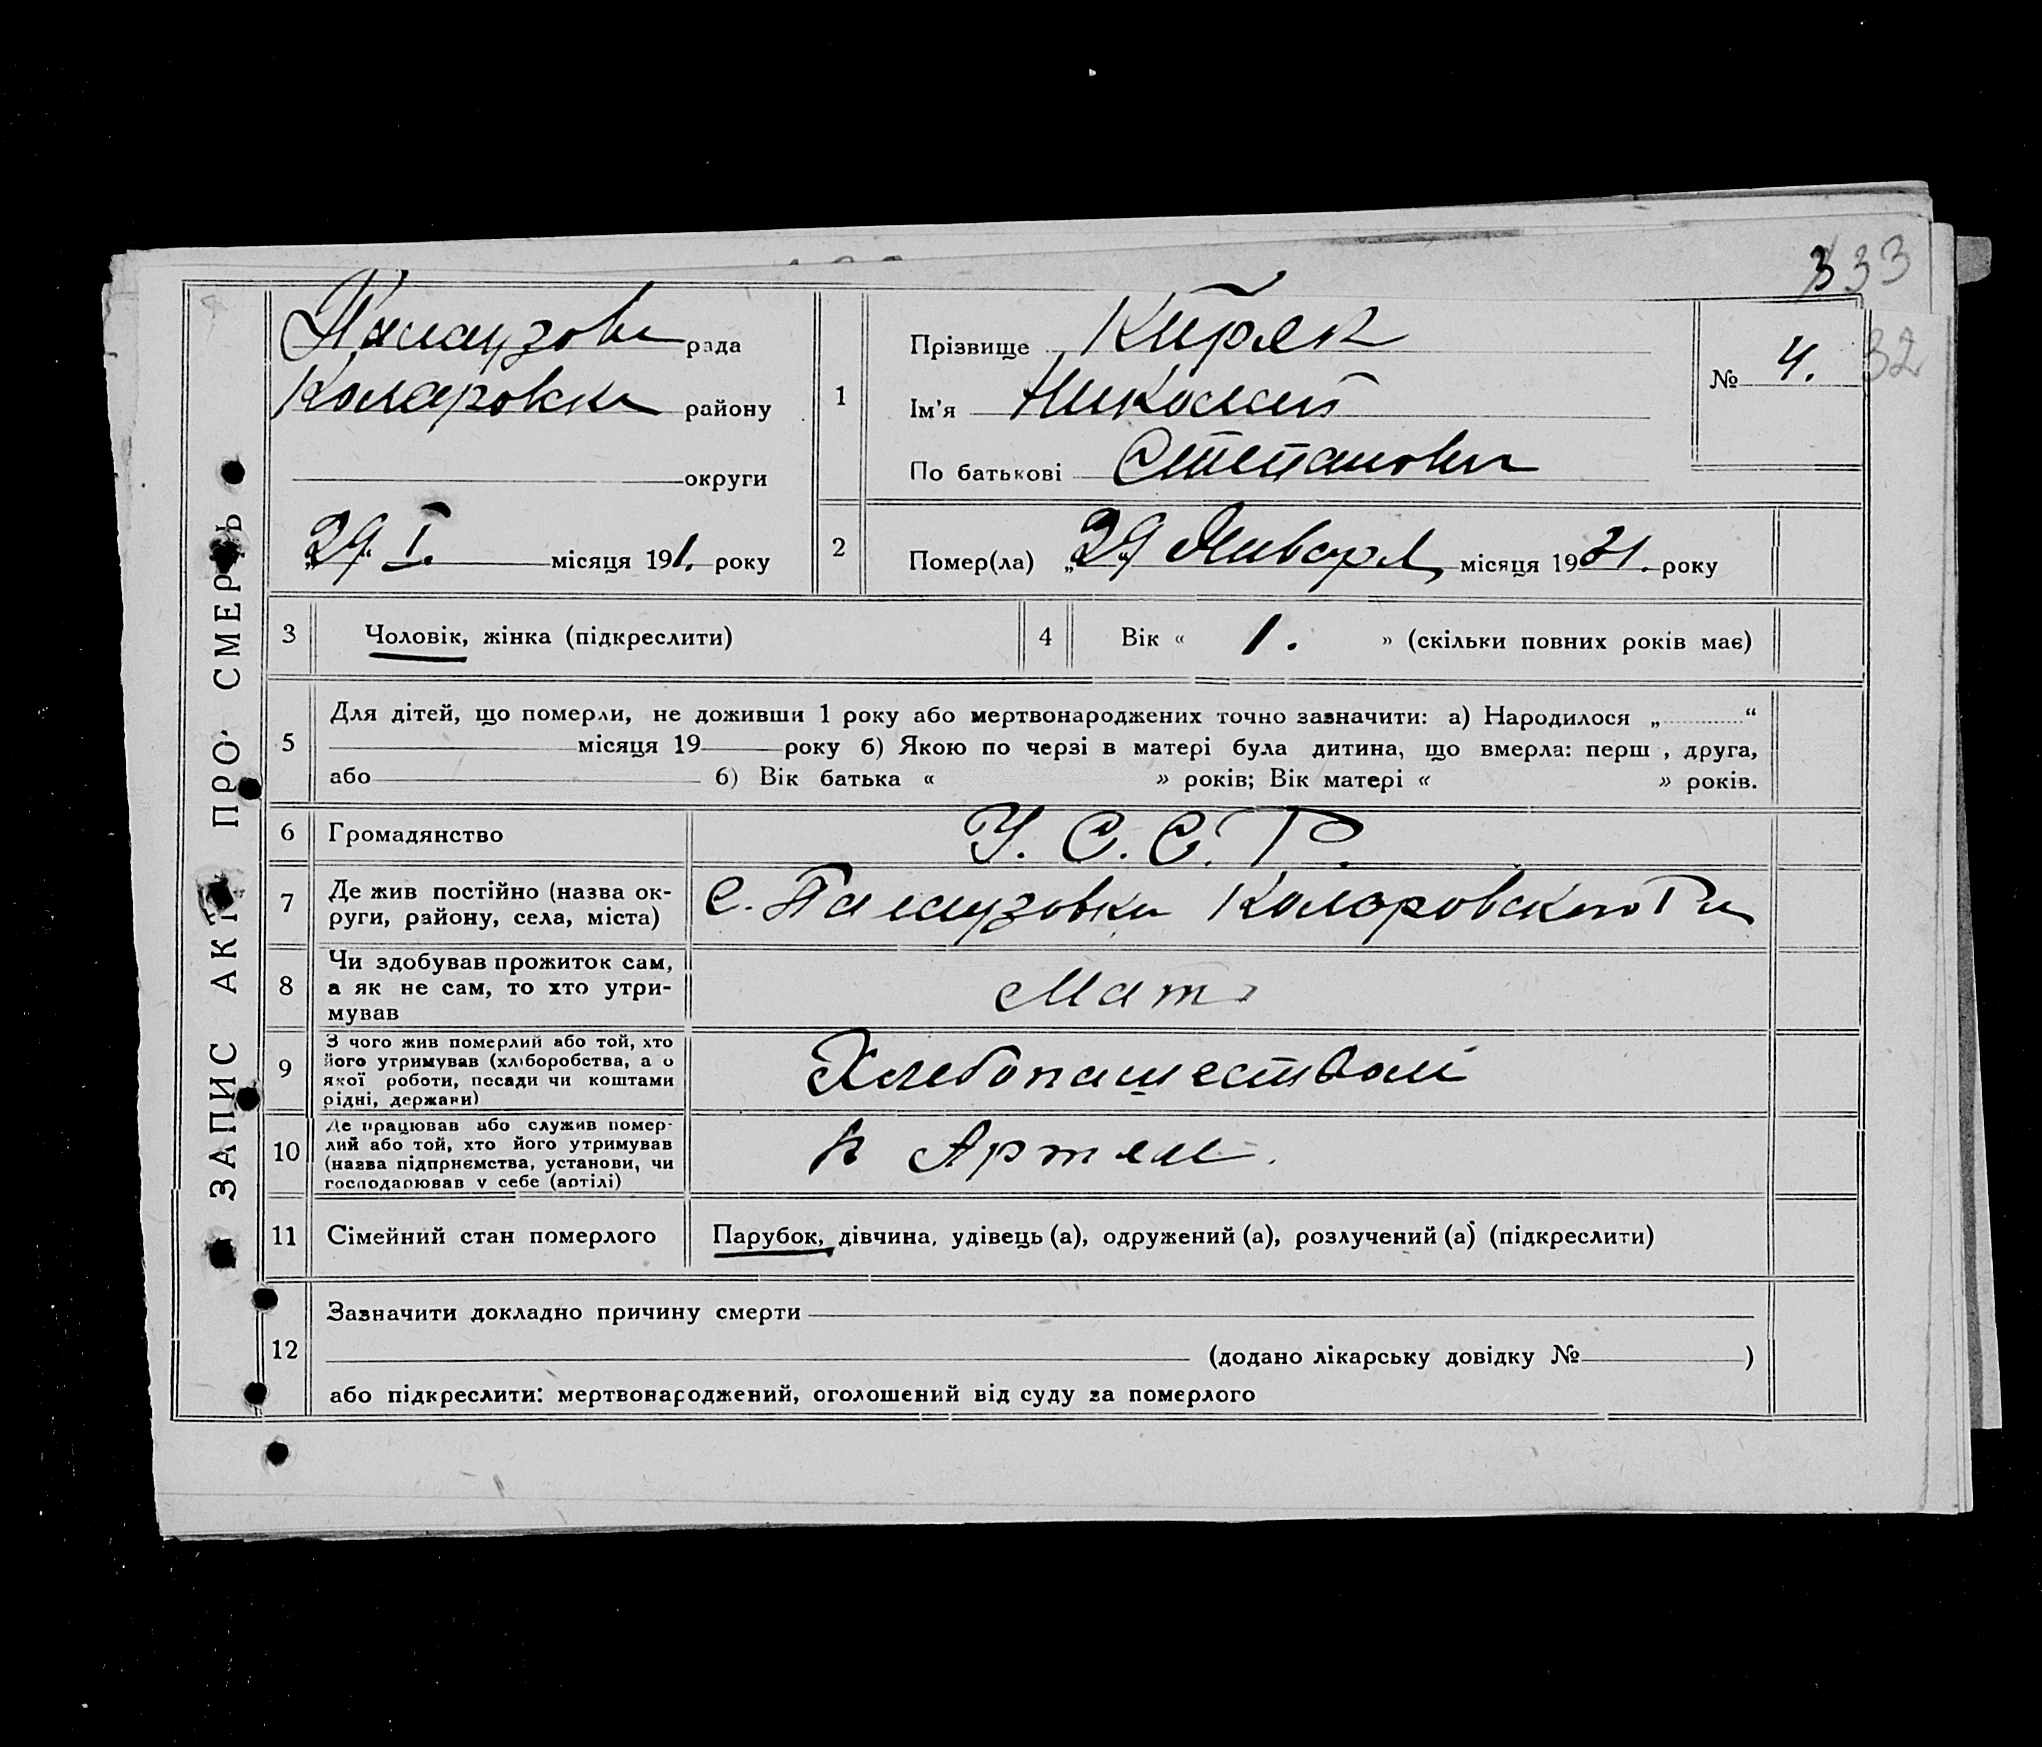 333
32
ЗАПИС АКТ ПРО СМЕРТЬ
рада
Коларовск району
округи
„29“ I. місяця 191. року
1
Прізвище Киряк
Ім'я Николай
По батькові Степанович
№ 4.
2
Помер(ла) „29 Января місяця 1931. року
3 Чоловік, жінка (підкреслити)
4 Вік « 1. » (скільки повних років має)
5
Для дітей, що померли, не доживши 1 року або мертвонароджених точно зазначити: а) Народилося „ “
місяця 19 року б) Якою по черзі в матері була дитина, що вмерла: перш , друга,
або б) Вік батька « » років; Вік матері « » років.
6 Громадянство У. С. С. Р.
7 Де жив постійно (назва ок-
руги, району, села, міста)
с. Палаузовка Коларовского Р н
8 Чи здобував прожиток сам,
а як не сам, то хто утри-
мував
Мать
9 З чого жив померлий або той, хто
його утримував (хліборобства, а о
якої роботи, посади чи коштами
рідні, держави)
Хлебопашеством
10 Де працював або служив помер-
лий або той, хто його утримував
(назва підприємства, установи, чи
господарював у себе (артілі)
в Артели.
11 Сімейний стан померлого Парубок, дівчина, удівець (а), одружений (а), розлучений (а) (підкреслити)
12
Зазначити докладно причину смерти
(додано лікарську довідку № )
або підкреслити: мертвонароджений, оголошений від суду за померлого